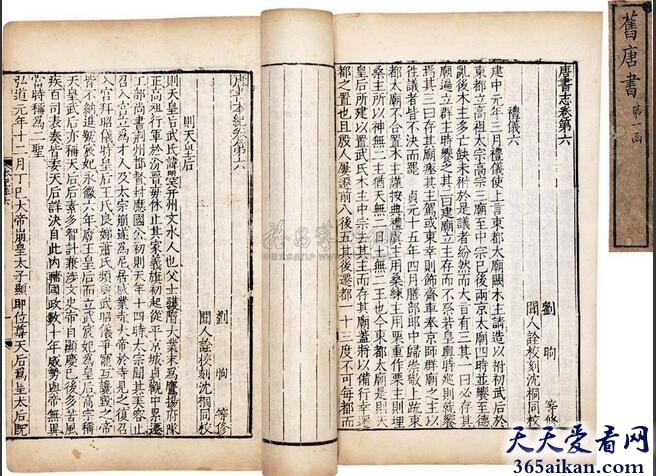 舊唐書 第一函
唐書志卷第六
劉昫 等修
聞人詮校刻沈桐同校
禮儀六
建中元年三月禮儀使上言東都太廟闕木主請造以祔初武后於
東都立高祖太宗高宗三廟至中宗已後兩京太廟四時並饗至德
亂後木主多亡缺未祔於是議者紛然而大言有三其一曰必存其
廟遍立群主時饗之其二曰建廟立主存而不祭若皇輿時巡則就饗
焉其三曰存其廟瘞其主駕或東幸則飾齋車奉京師群廟之主以
往議者皆不決而罷 貞元十五年四月膳部郎中歸崇敬上疏東
都太廟不合置木主謹按典禮虞主用桑練主用栗重作栗主則埋
桑主所以神無二主猶天無二日土無二王也今東都太廟是則天
皇后所建以置武氏木主中宗去其主而存其廟蓋將以備行幸遷
都之置也且殷人屢遷前八後五其後遷都一十三度不可每都而
唐書本紀卷第六
劉昫 等修
聞人詮校刻沈桐同校
則天皇后
則天皇后武氏諱曌并州文水人也父士彠隋大業末為鷹揚府隊
正高祖行軍於汾晉每休止其家義旗初起從平京城貞觀中累遷
工部尚書荊州都督封應國公初則天年十四時太宗聞其美容止
召入宮立為才人及太宗崩遂為尼居感業寺大帝於寺見之復召
入宮拜昭儀時皇后王氏良娣蕭氏頻與武昭儀爭寵互讒毀之帝
皆不納進號宸妃永徽六年廢王皇后而立武宸妃為皇后高宗稱
天皇武后亦稱天后后素多智計兼涉文史帝自顯慶已後多苦風
疾百司表奏皆委天后詳決自此內輔國政數十年威勢與帝無異
當時稱為二聖
弘道元年十二月丁巳大帝崩皇太子顯即位尊天后為皇太后既
天天爱看网
365aikan.com